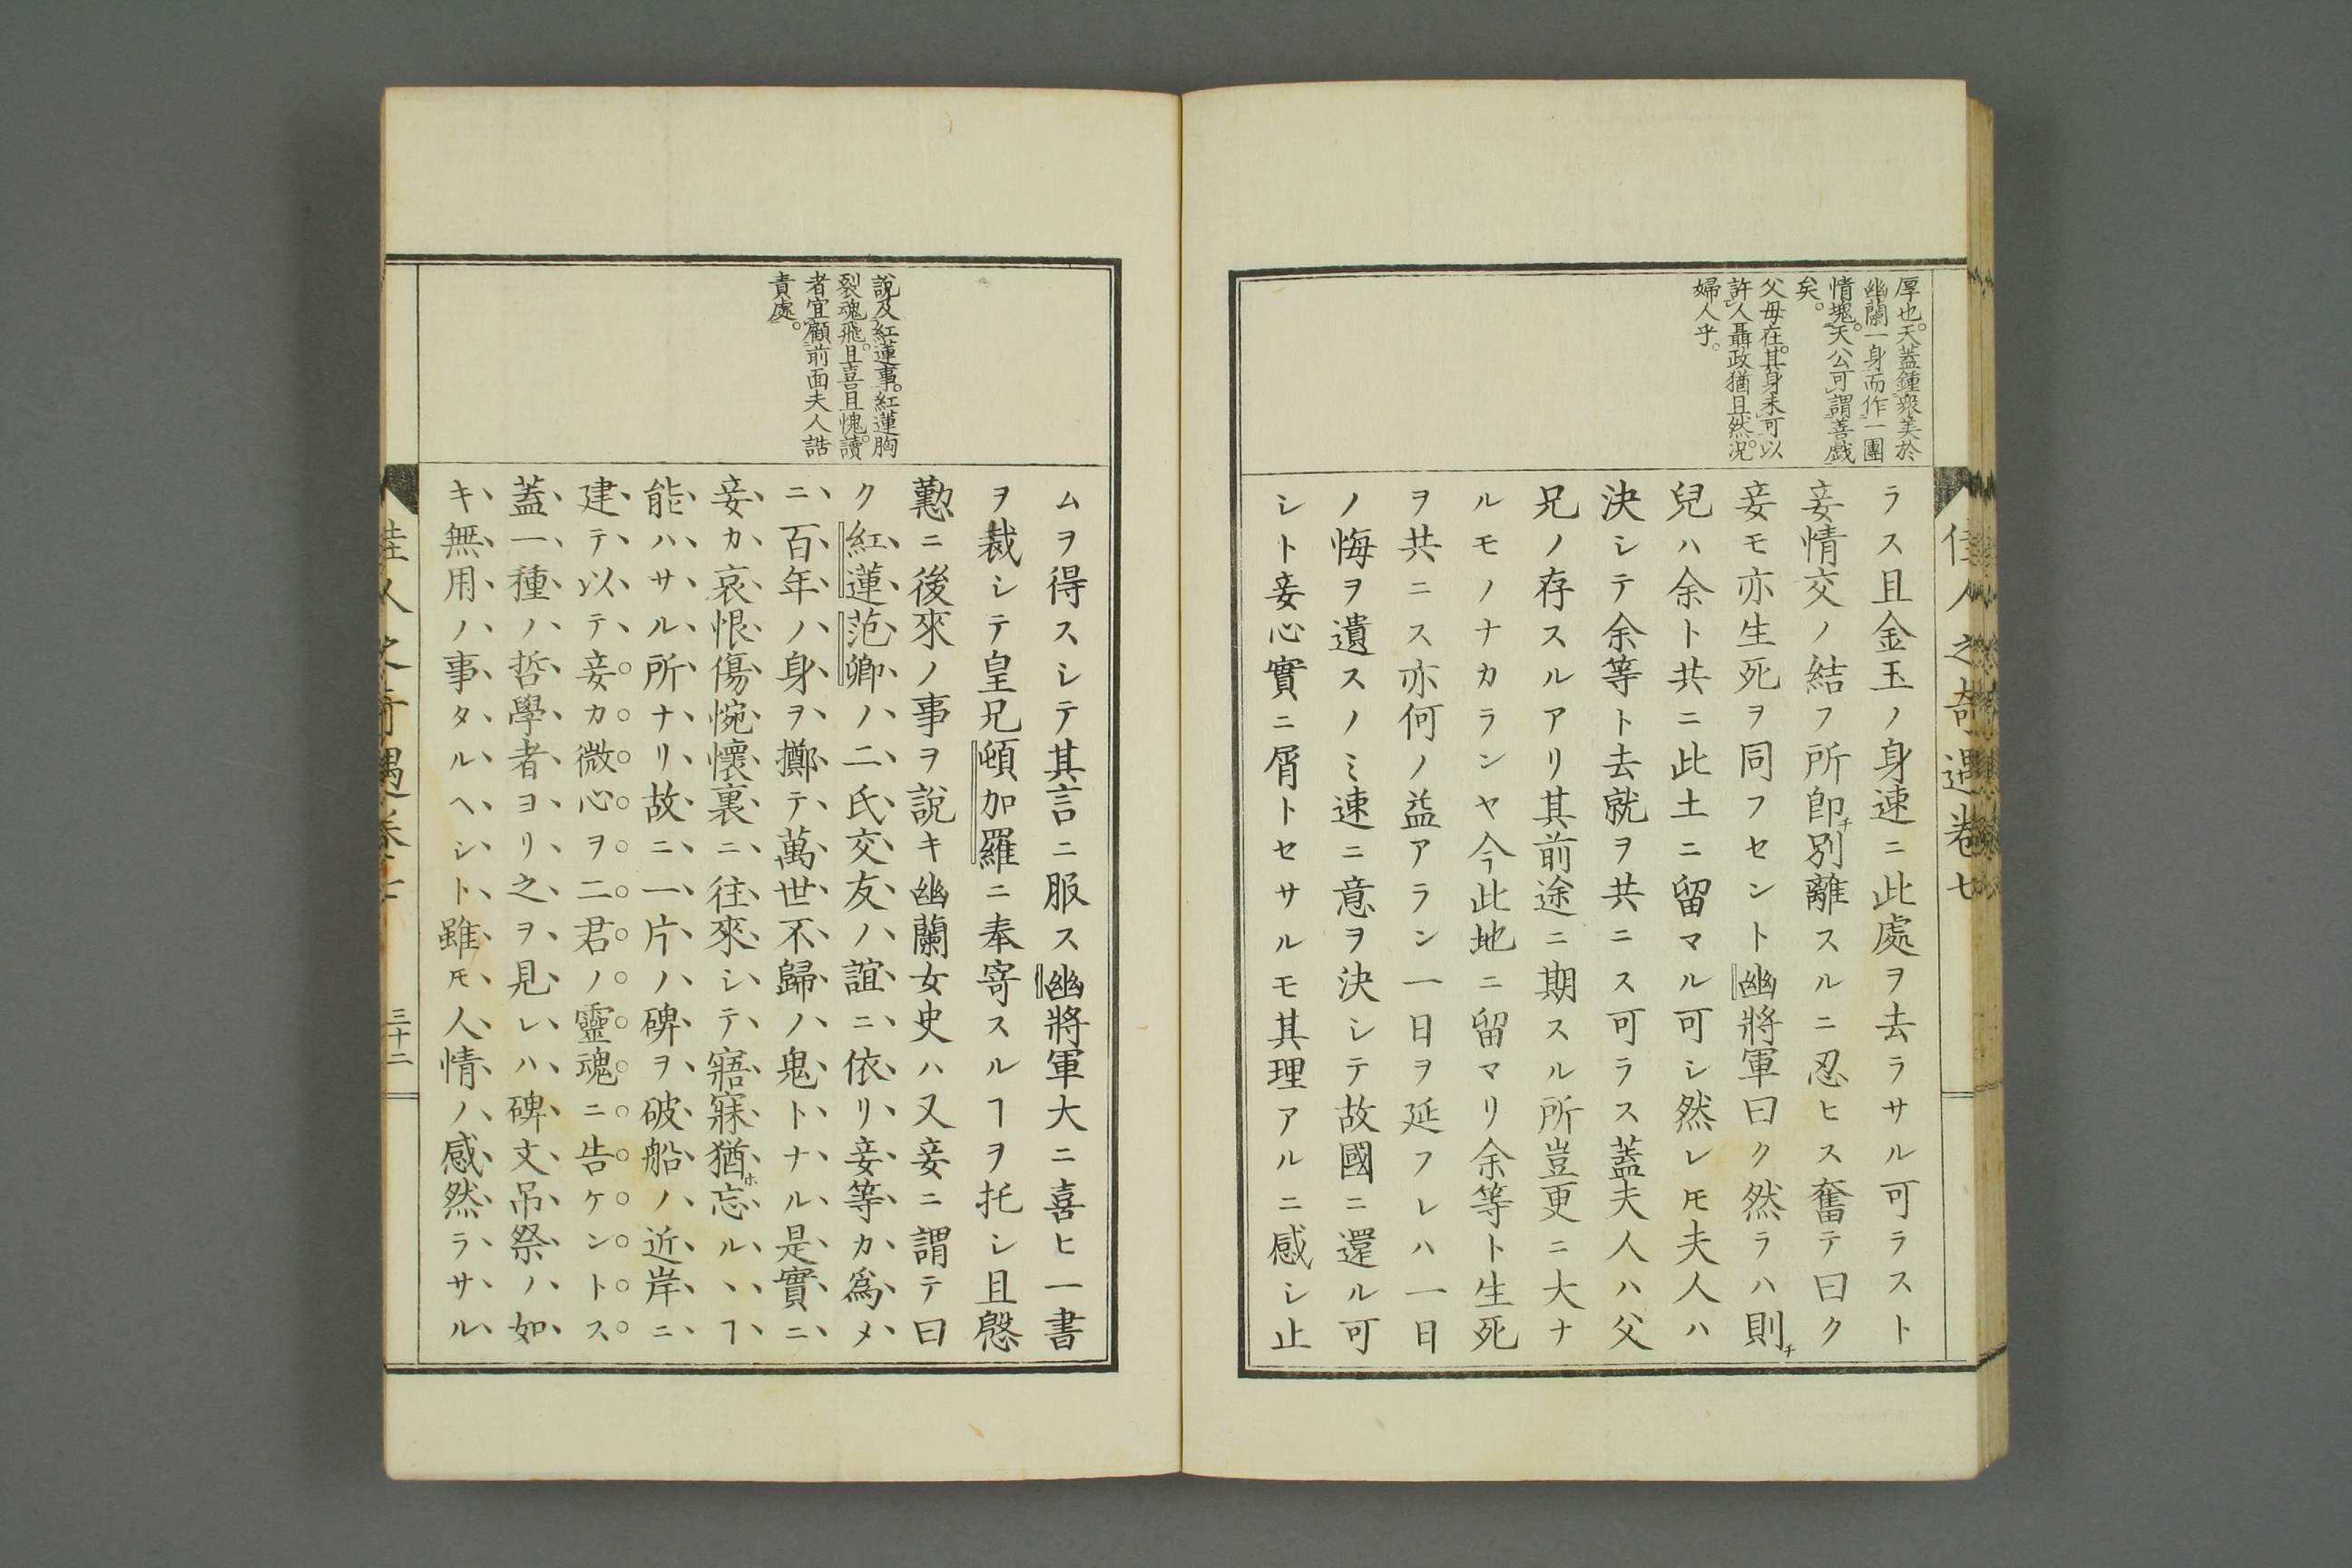 厚也。天蓋鍾衆美於
幽蘭一身而作一團
情塊。天公可謂善戯
矣。
父母在。其身未可以
許人聶政猶且然。況
婦人乎。
佳人之奇遇卷七
ラス且金玉ノ身速ニ此處ヲ去ラサル可ラスト
妾情交ノ結フ所卽チ別離スルニ忍ヒス奮テ曰ク
妾モ亦生死ヲ同フセント幽將軍曰ク然ラハ則チ
兒ハ余ト共ニ此土ニ留マル可シ然レ𪜈夫人ハ
決シテ余等ト去就ヲ共ニス可ラス蓋夫人ハ父
兄ノ存スルアリ其前途ニ期スル所豈更ニ大ナ
ルモノナカランヤ今此地ニ留マリ余等ト生死
ヲ共ニス亦何ノ益アラン一日ヲ延フレハ一日
ノ悔ヲ遺スノミ速ニ意ヲ決シテ故國ニ還ル可
シト妾心實ニ屑トセサルモ其理アルニ感シ止
說及紅蓮事。紅蓮胸
裂魂飛。且喜且愧。讀
者宜顧前面夫人詰
責處。
ムヲ得スシテ其言ニ服ス幽將軍大ニ喜ヒ一書
ヲ裁シテ皇兄頓加羅ニ奉寄スルヿヲ托シ且慇
懃ニ後來ノ事ヲ說キ幽蘭女史ハ又妾ニ謂テ曰
ク紅蓮范卿ノ二氏交友ノ誼ニ依リ妾等カ爲メ
ニ百年ノ身ヲ擲テ萬世不歸ノ鬼トナル是實ニ
妾カ哀恨傷惋懷裏ニ往來シテ寤寐猶ホ忘ルヽヿ
能ハサル所ナリ故ニ一片ノ碑ヲ破船ノ近岸ニ
建テ以テ妾カ微心ヲ二君ノ靈魂ニ告ケントス
蓋一種ノ哲學者ヨリ之ヲ見レハ碑文吊祭ノ如
キ無用ノ事タルヘシト雖𪜈人情ノ感然ラサル
佳人之奇遇卷七
三十二